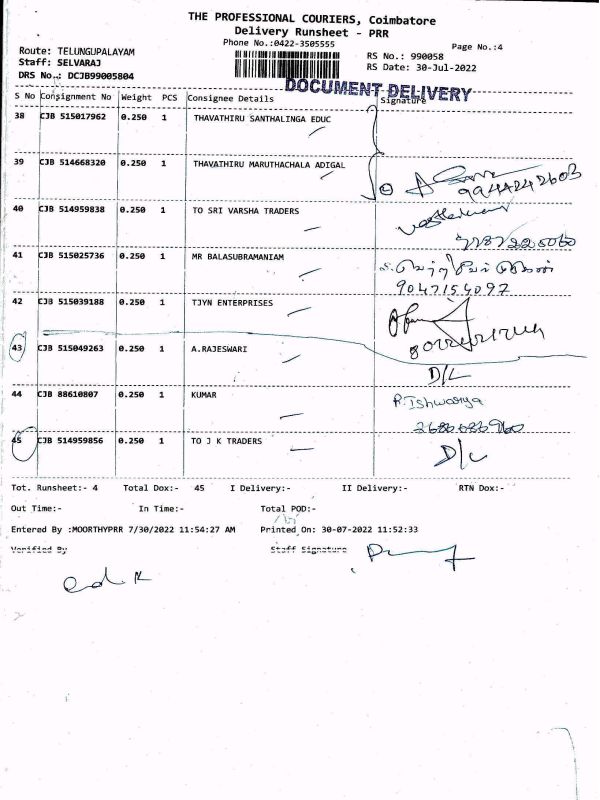 THE PROFESSIONAL COURIERS, Coimbatore
Delivery Runsheet - PRR
Phone No.:0422-3505555
Page No.:4
Route: TELUNGUPALAYAM
RS No.: 990058
Staff: SELVARAJ
RS Date: 30-Jul-2022
DRS No.: DCJB99005804
DOCUMENT DELIVERY
S No Consignment No Weight PCS Consignee Details Signature
38 CJB 515017962 0.250 1 THAVATHIRU SANTHALINGA EDUC
39 CJB 514668320 0.250 1 THAVATHIRU MARUTHACHALA ADIGAL
9944242603
40 CJB 514959838 0.250 1 TO SRI VARSHA TRADERS
41 CJB 515025736 0.250 1 MR BALASUBRAMANIAM
9047154097
42 CJB 515039188 0.250 1 TJYN ENTERPRISES
43 CJB 515049263 0.250 1 A.RAJESWARI
D/L
44 CJB 88610807 0.250 1 KUMAR R.Ishwarya
45 CJB 514959856 0.250 1 TO J K TRADERS D/L
Tot. Runsheet:- 4 Total Dox:- 45 I Delivery:- II Delivery:- RTN Dox:-
Out Time:- In Time:- Total POD:-
Entered By :MOORTHYPRR 7/30/2022 11:54:27 AM Printed On: 30-07-2022 11:52:33
Verified By Staff Signature